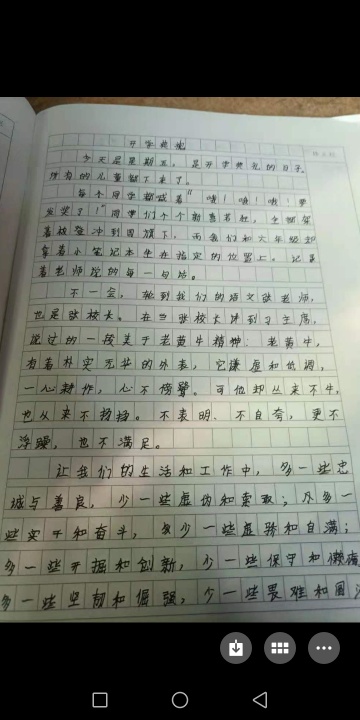 开学典礼
今天是星期五，是开学典礼的日子，
所有的儿童都下来了。
每个同学都喊着"哦！哦！哦！要
发奖了！"同学们个个
着被登冲到国旗下，而我们和六年级却
拿着小笔记本坐在指定的位置上。记录
着老师说的每一句话。
不一会，轮到我们的语文张老师，
也是张校长。在当张校长讲到习主席，
说过的一段关于老黄牛精神：老黄牛，
有着朴实无华的外表，它谦虚和低调，
一心耕作，心不旁骛。可他却从来不牛，
也从来不放挡。不表明、不自夸，更不
浮躁，也不满足。
让我们的生活和工作中，多一些忠
诚与善良，少一些虚伪和索取；及多一
些实干和奋斗，少一些虚骄和自满；
多一些开掘和创新，少一些保守和懒惰
多一些坚韧和倔强，少一些畏难和